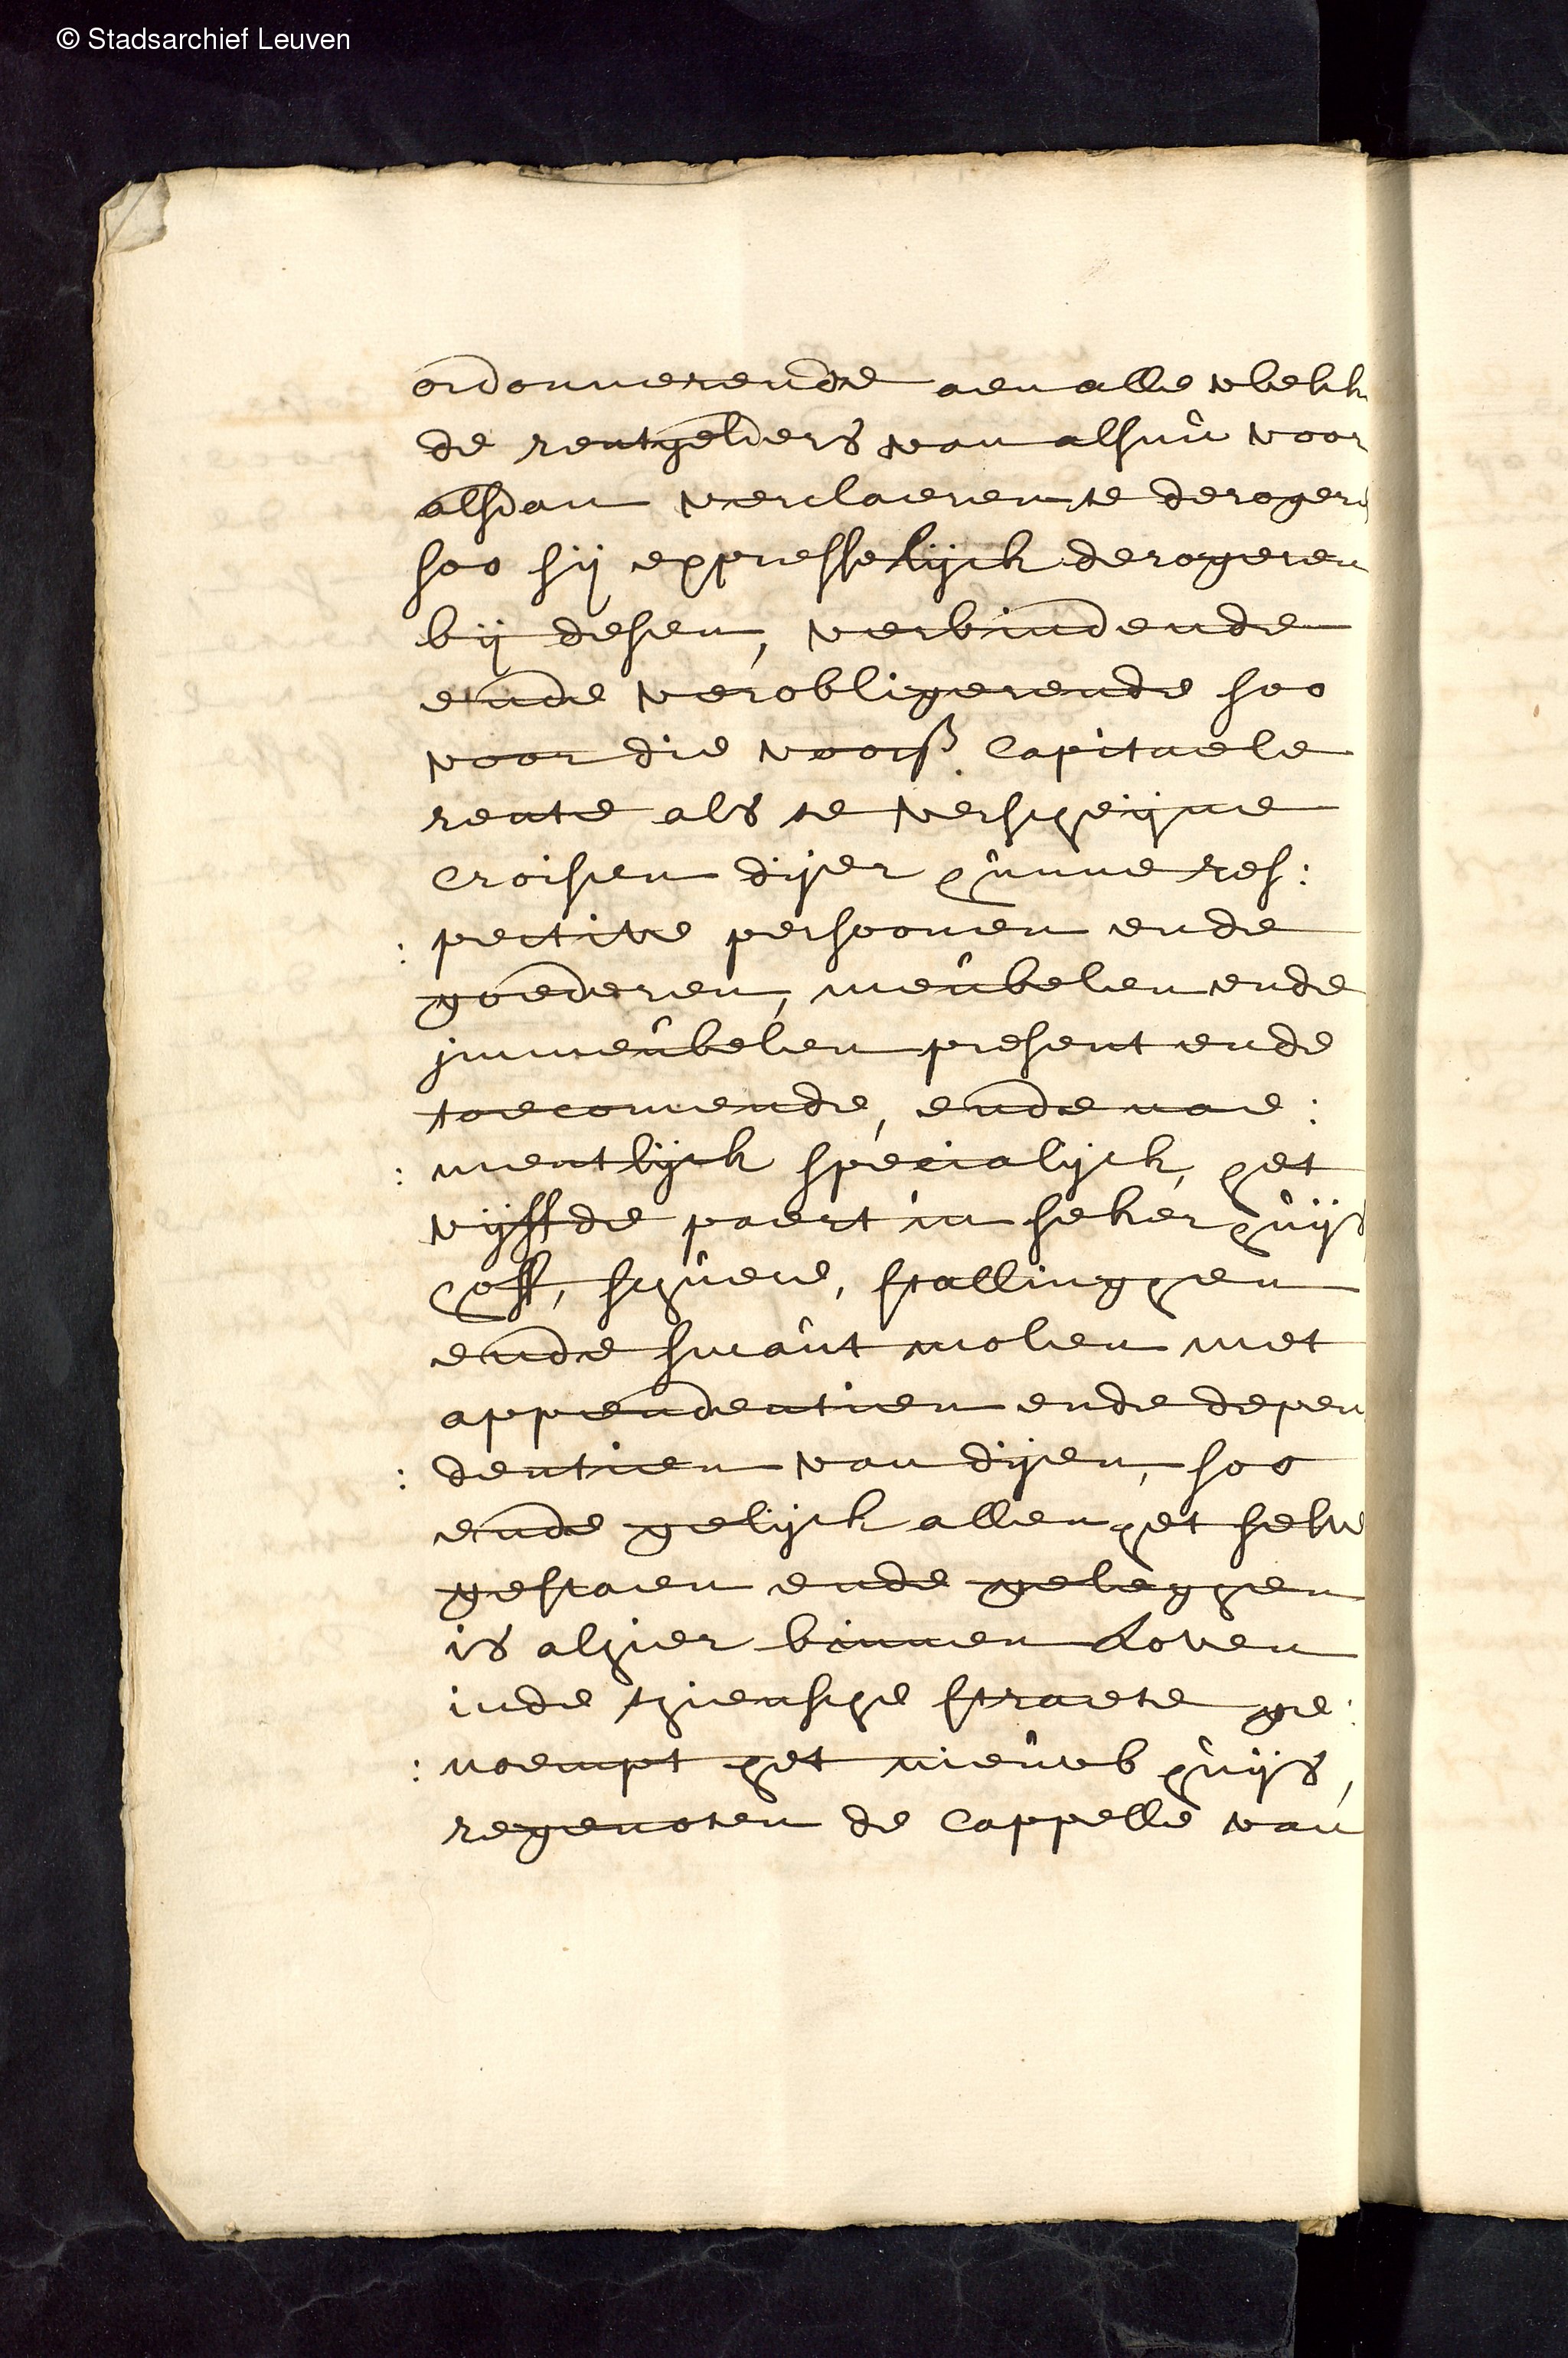 © Stadsarchief Leuven
ordonnerende aen alle welck
de rentgelders van alsnu voor
alsdan verclaeren te derogere
soo sij expresselijck derogeren
bij desen, verbindende
ende verobligerende soo
voor die voorß. Capitaele
rente als te verschijne
croisen dijer hunne res:
: pective persoonen ende
goederen, meubelen ende
immeubelen present ende
toecomende, ende nae:
: mentlijck specialijck, het
vijffde paert in seker huijs
hoff, schuere, stallinghen
ende smaut molen met
appendentien ende depen
: dentien van dijen, soo
ende gelijck allen het selve
gestaen ende geleghen
is alhier binnen Loven
inde thiensche straete ge:
: noempt het nieuwb huijs,
regenoten de Cappelle van